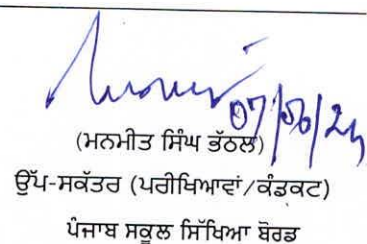 07/06/24
(ਮਨਮੀਤ ਸਿੰਘ ਭੱਠਲ)
ਉੱਪ-ਸਕੱਤਰ (ਪਰੀਖਿਆਵਾਂ/ਕੰਡਕਟ)
ਪੰਜਾਬ ਸਕੂਲ ਸਿੱਖਿਆ ਬੋਰਡ